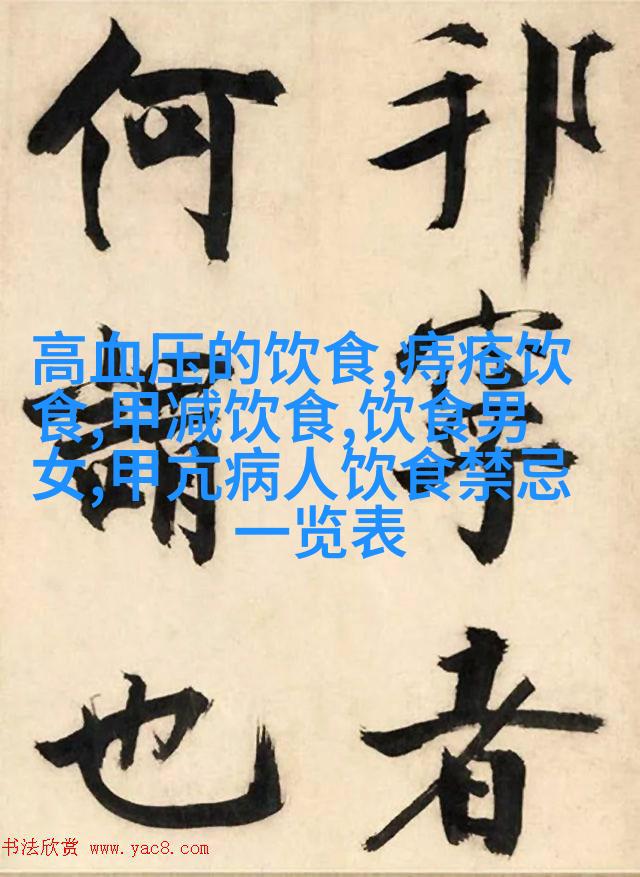 邦寧者
何謂也
高血压的饮食,痔疮饮
食,甲减饮食,饮食男
女,甲亢病人饮食禁忌
一览表
书法欣赏 www.yac8.com